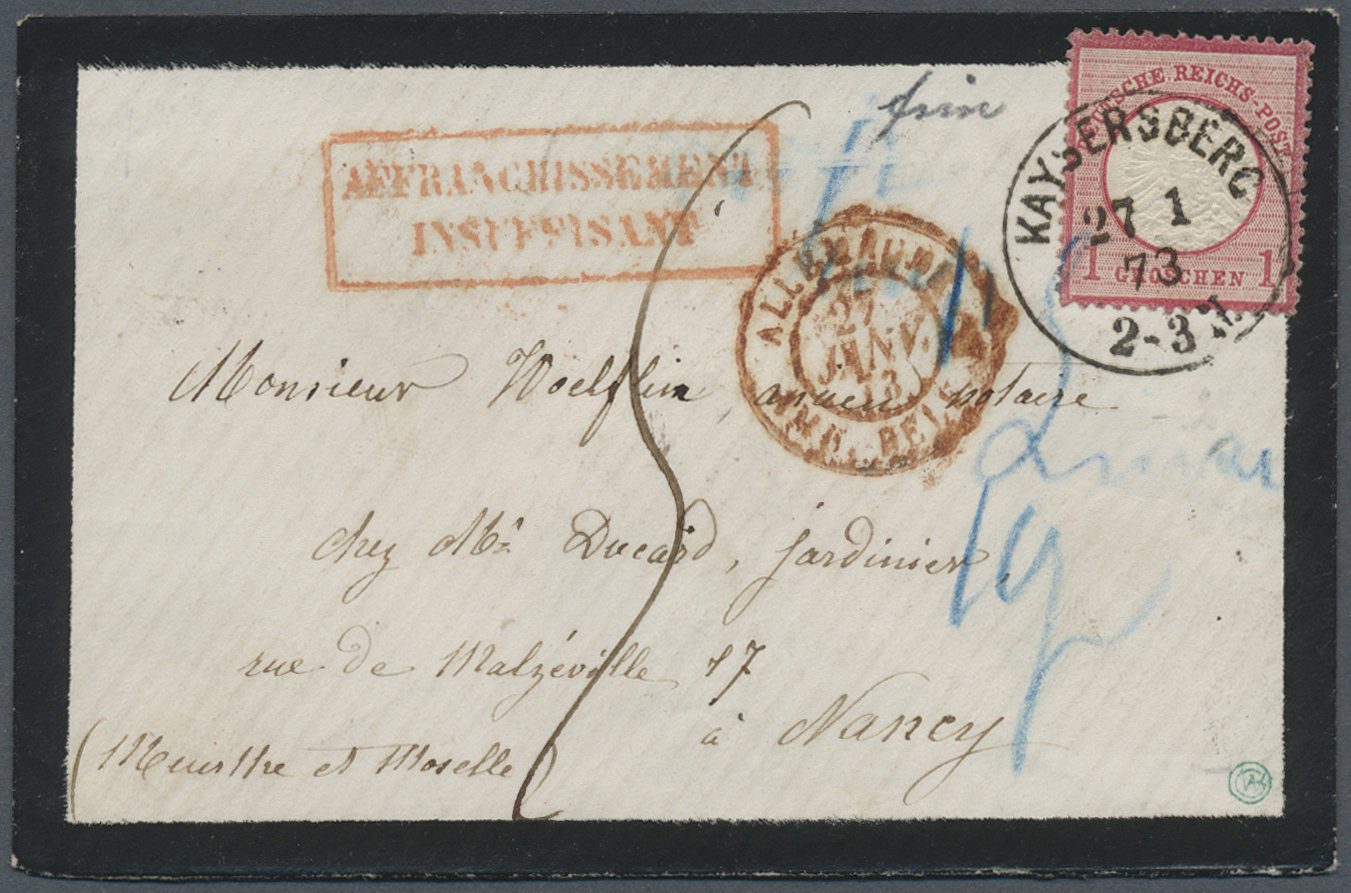 franco
DEUTSCHE REICHS-POST
1 GROSCHEN 1
KAYSERSBERG
27 1
73
2-3 N
AFFRANCHISSEMENT
INSUFFISANT
27
JANV.
73
Monsieur Woelflin ancien notaire
chez Mr Ducard, jardinier,
rue de Malzéville 17
à Nancy
(Meurthe et Moselle)